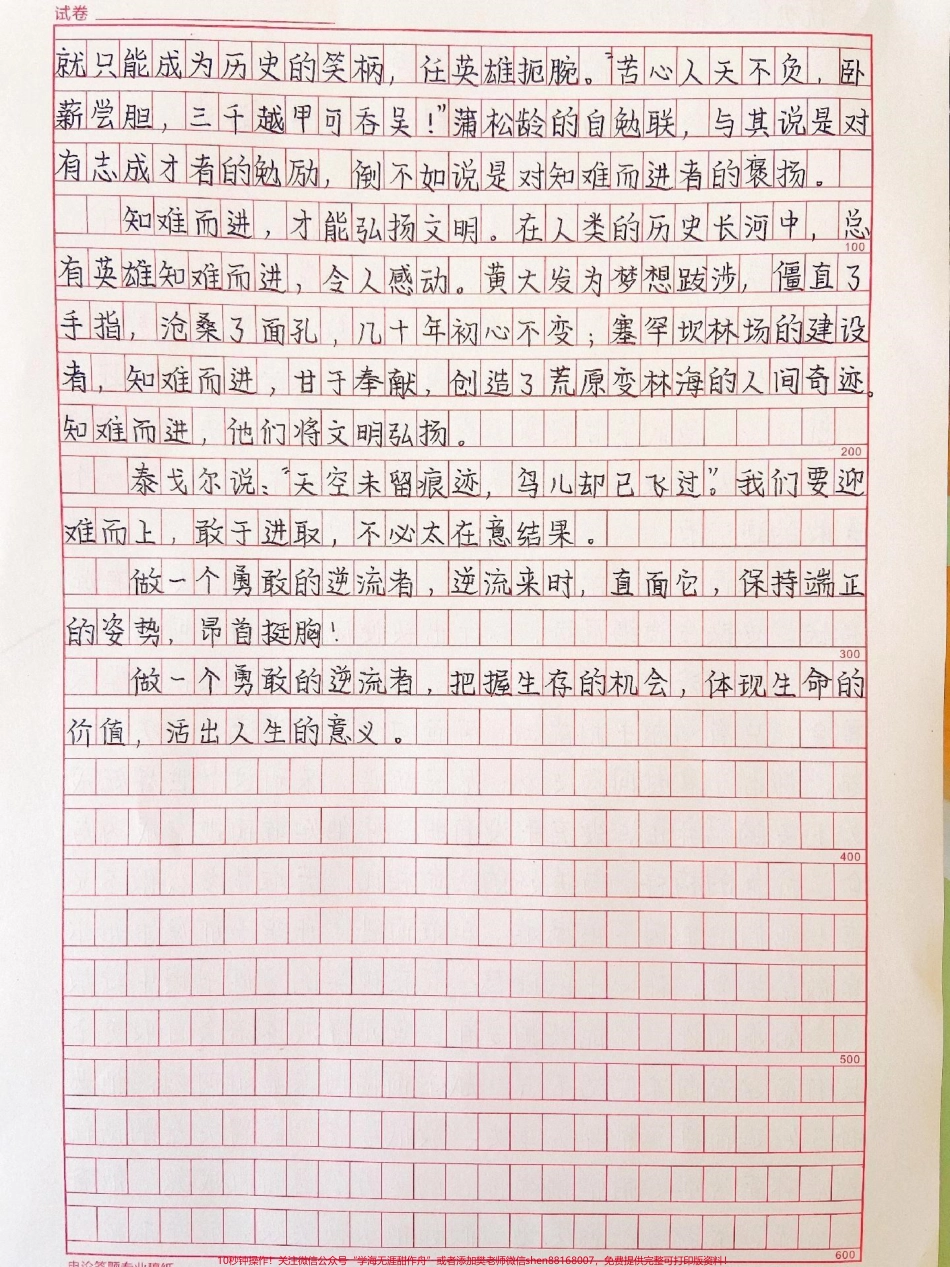 试卷
就只能成为历史的笑柄，任英雄扼腕。“苦心人天不负，卧
薪尝胆，三千越甲可吞吴！”蒲松龄的自勉联，与其说是对
有志成才者的勉励，倒不如说是对知难而进者的褒扬。
知难而进，才能弘扬文明。在人类的历史长河中，总
100
有英雄知难而进，令人感动。黄大发为梦想跋涉，僵直了
手指，沧桑了面孔，几十年初心不变；塞罕坎林场的建设
者，知难而进，甘于奉献，创造了荒原变林海的人间奇迹。
知难而进，他们将文明弘扬。
200
泰戈尔说：“天空未留痕迹，鸟儿却已飞过”。我们要迎
难而上，敢于进取，不必太在意结果。
做一个勇敢的逆流者，逆流来时，直面它，保持端正
的姿势，昂首挺胸！
300
做一个勇敢的逆流者，把握生存的机会，体现生命的
价值，活出人生的意义。
400
500
600
10秒钟操作！关注微信公众号“学海无涯甜作舟”或者添加樊老师微信shen88168007，免费提供完整可打印版资料！